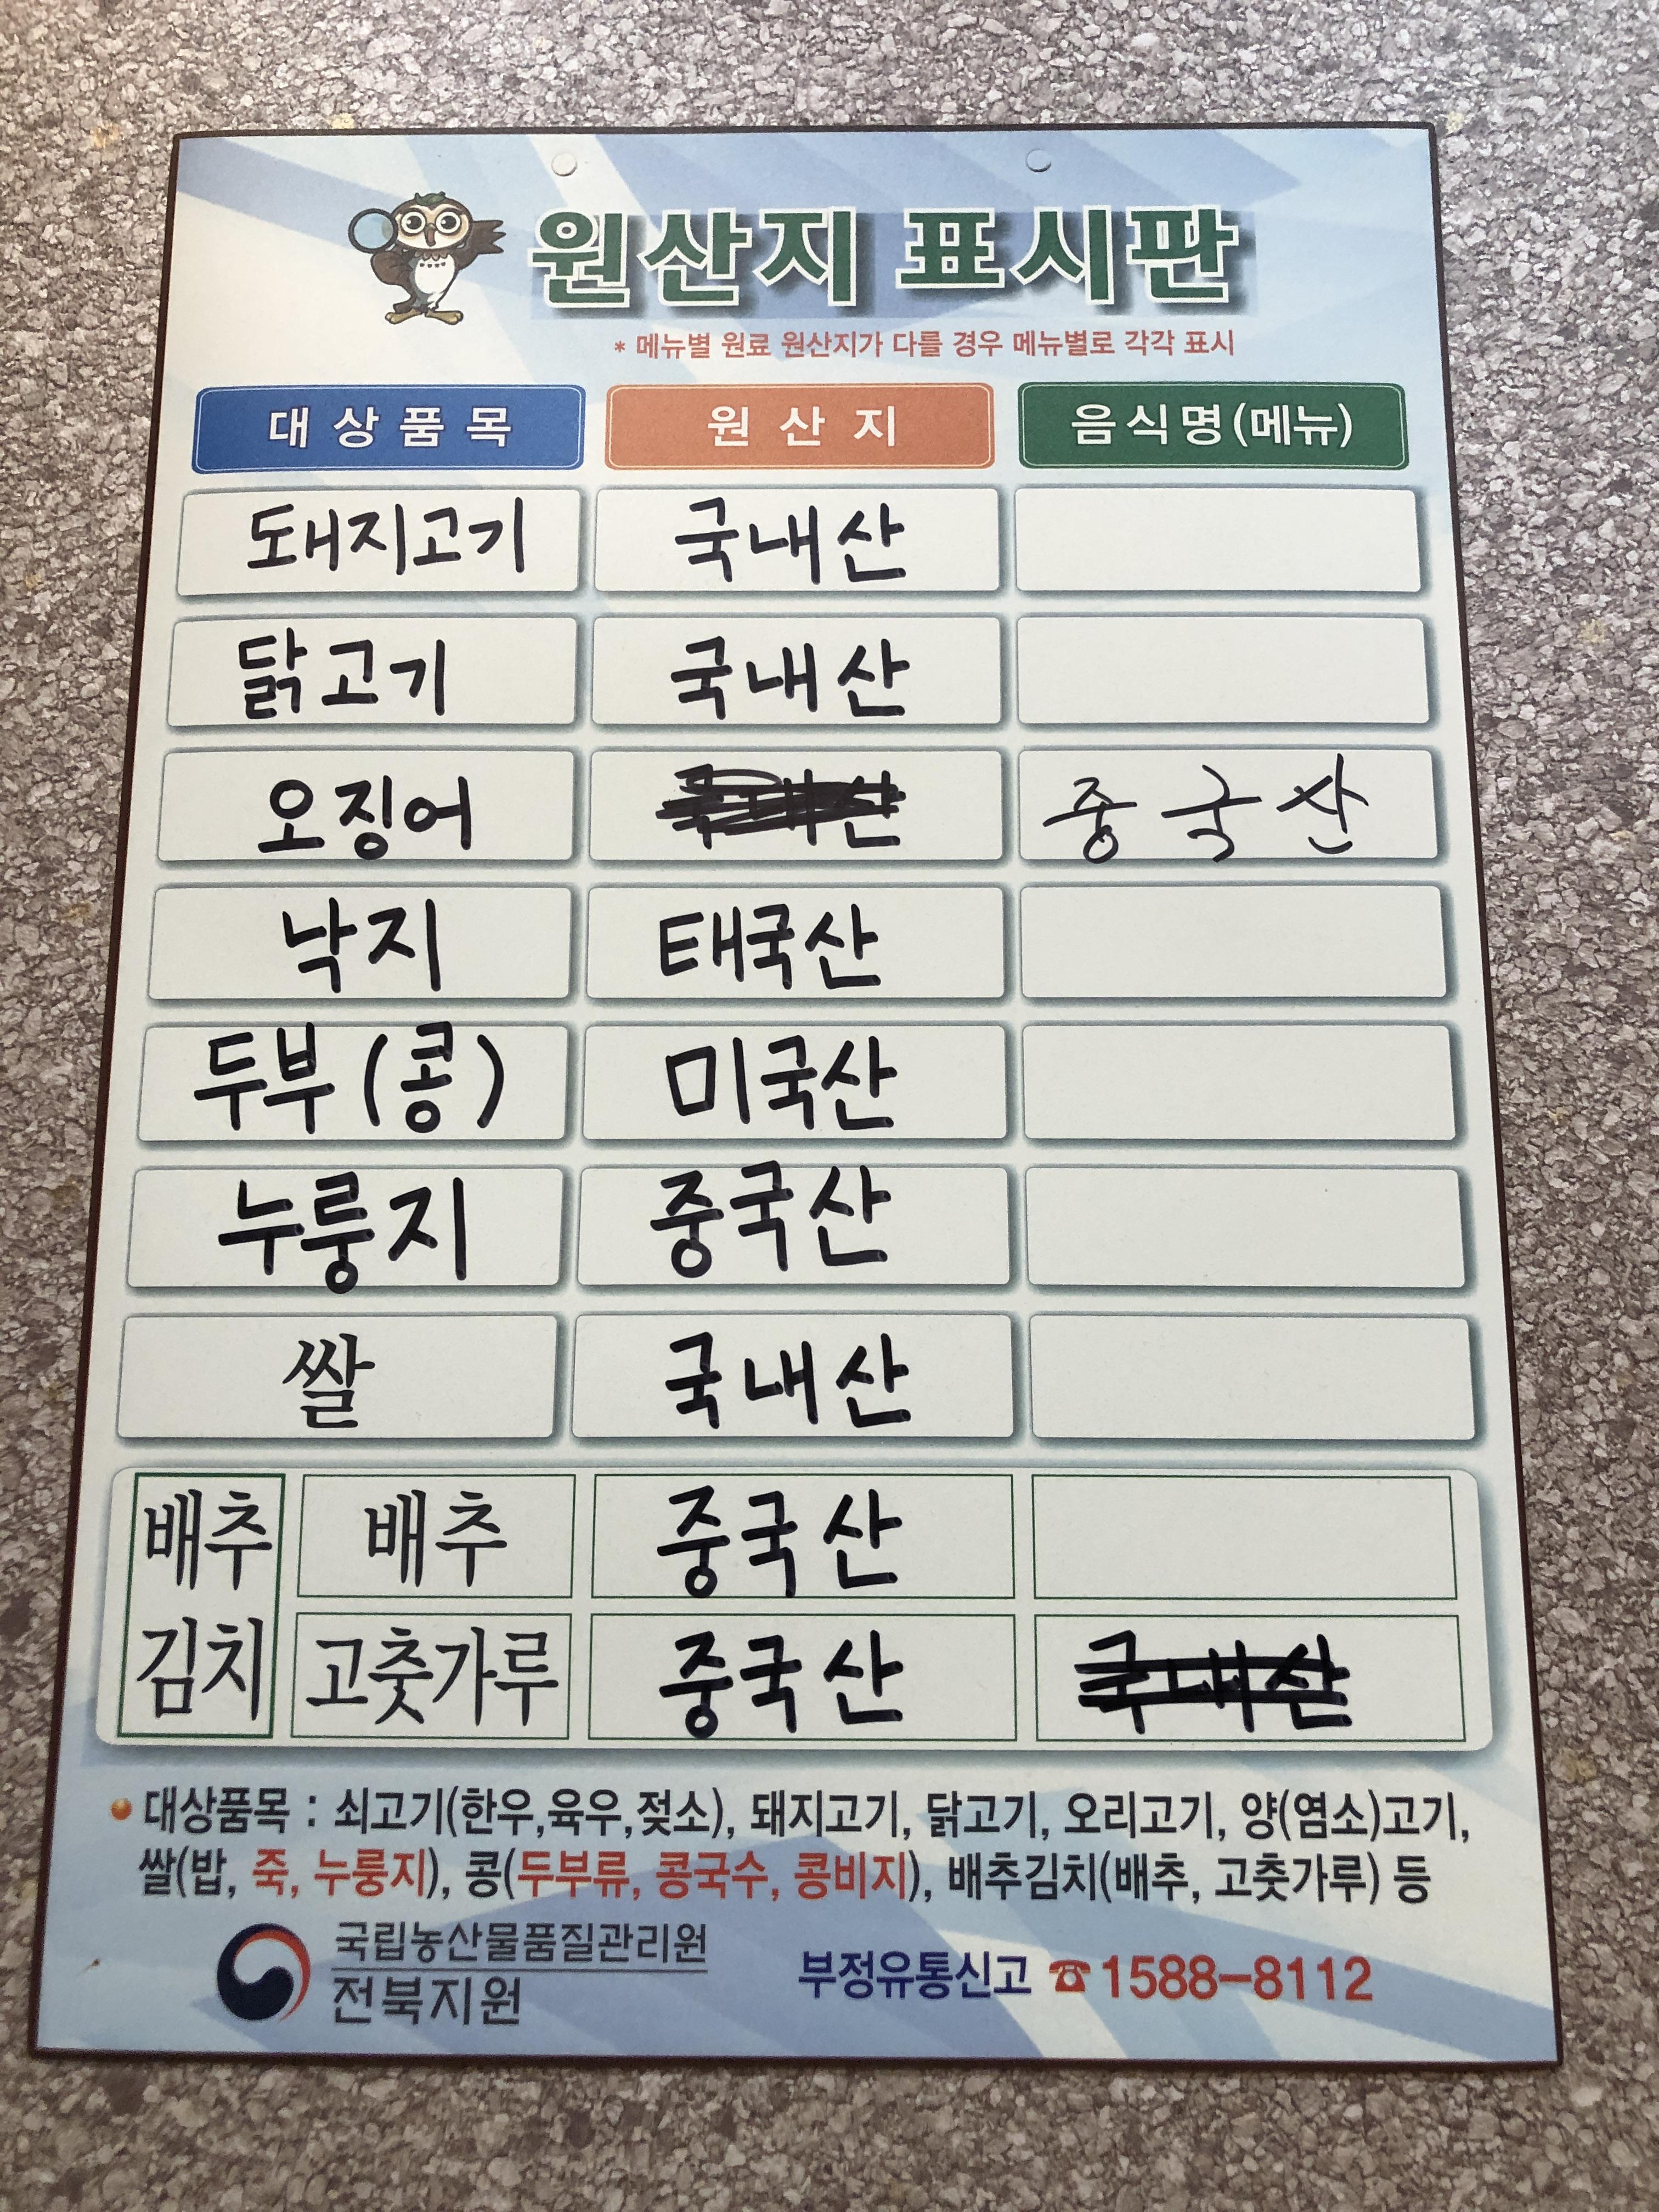 원산지 표시판
* 메뉴별 원료 원산지가 다를 경우 메뉴별로 각각 표시
대상품목 원산지 음식명(메뉴)
돼지고기 국내산
닭고기 국내산
오징어 국내산 중국산
낙지 태국산
두부(콩) 미국산
누룽지 중국산
쌀 국내산
배추 배추 중국산
김치 고춧가루 중국산 국내산
대상품목 : 쇠고기(한우,육우,젖소), 돼지고기, 닭고기, 오리고기, 양(염소)고기,
쌀(밥, 죽, 누룽지), 콩(두부류, 콩국수, 콩비지), 배추김치(배추, 고춧가루) 등
국립농산물품질관리원
전북지원
부정유통신고 ☎1588-8112